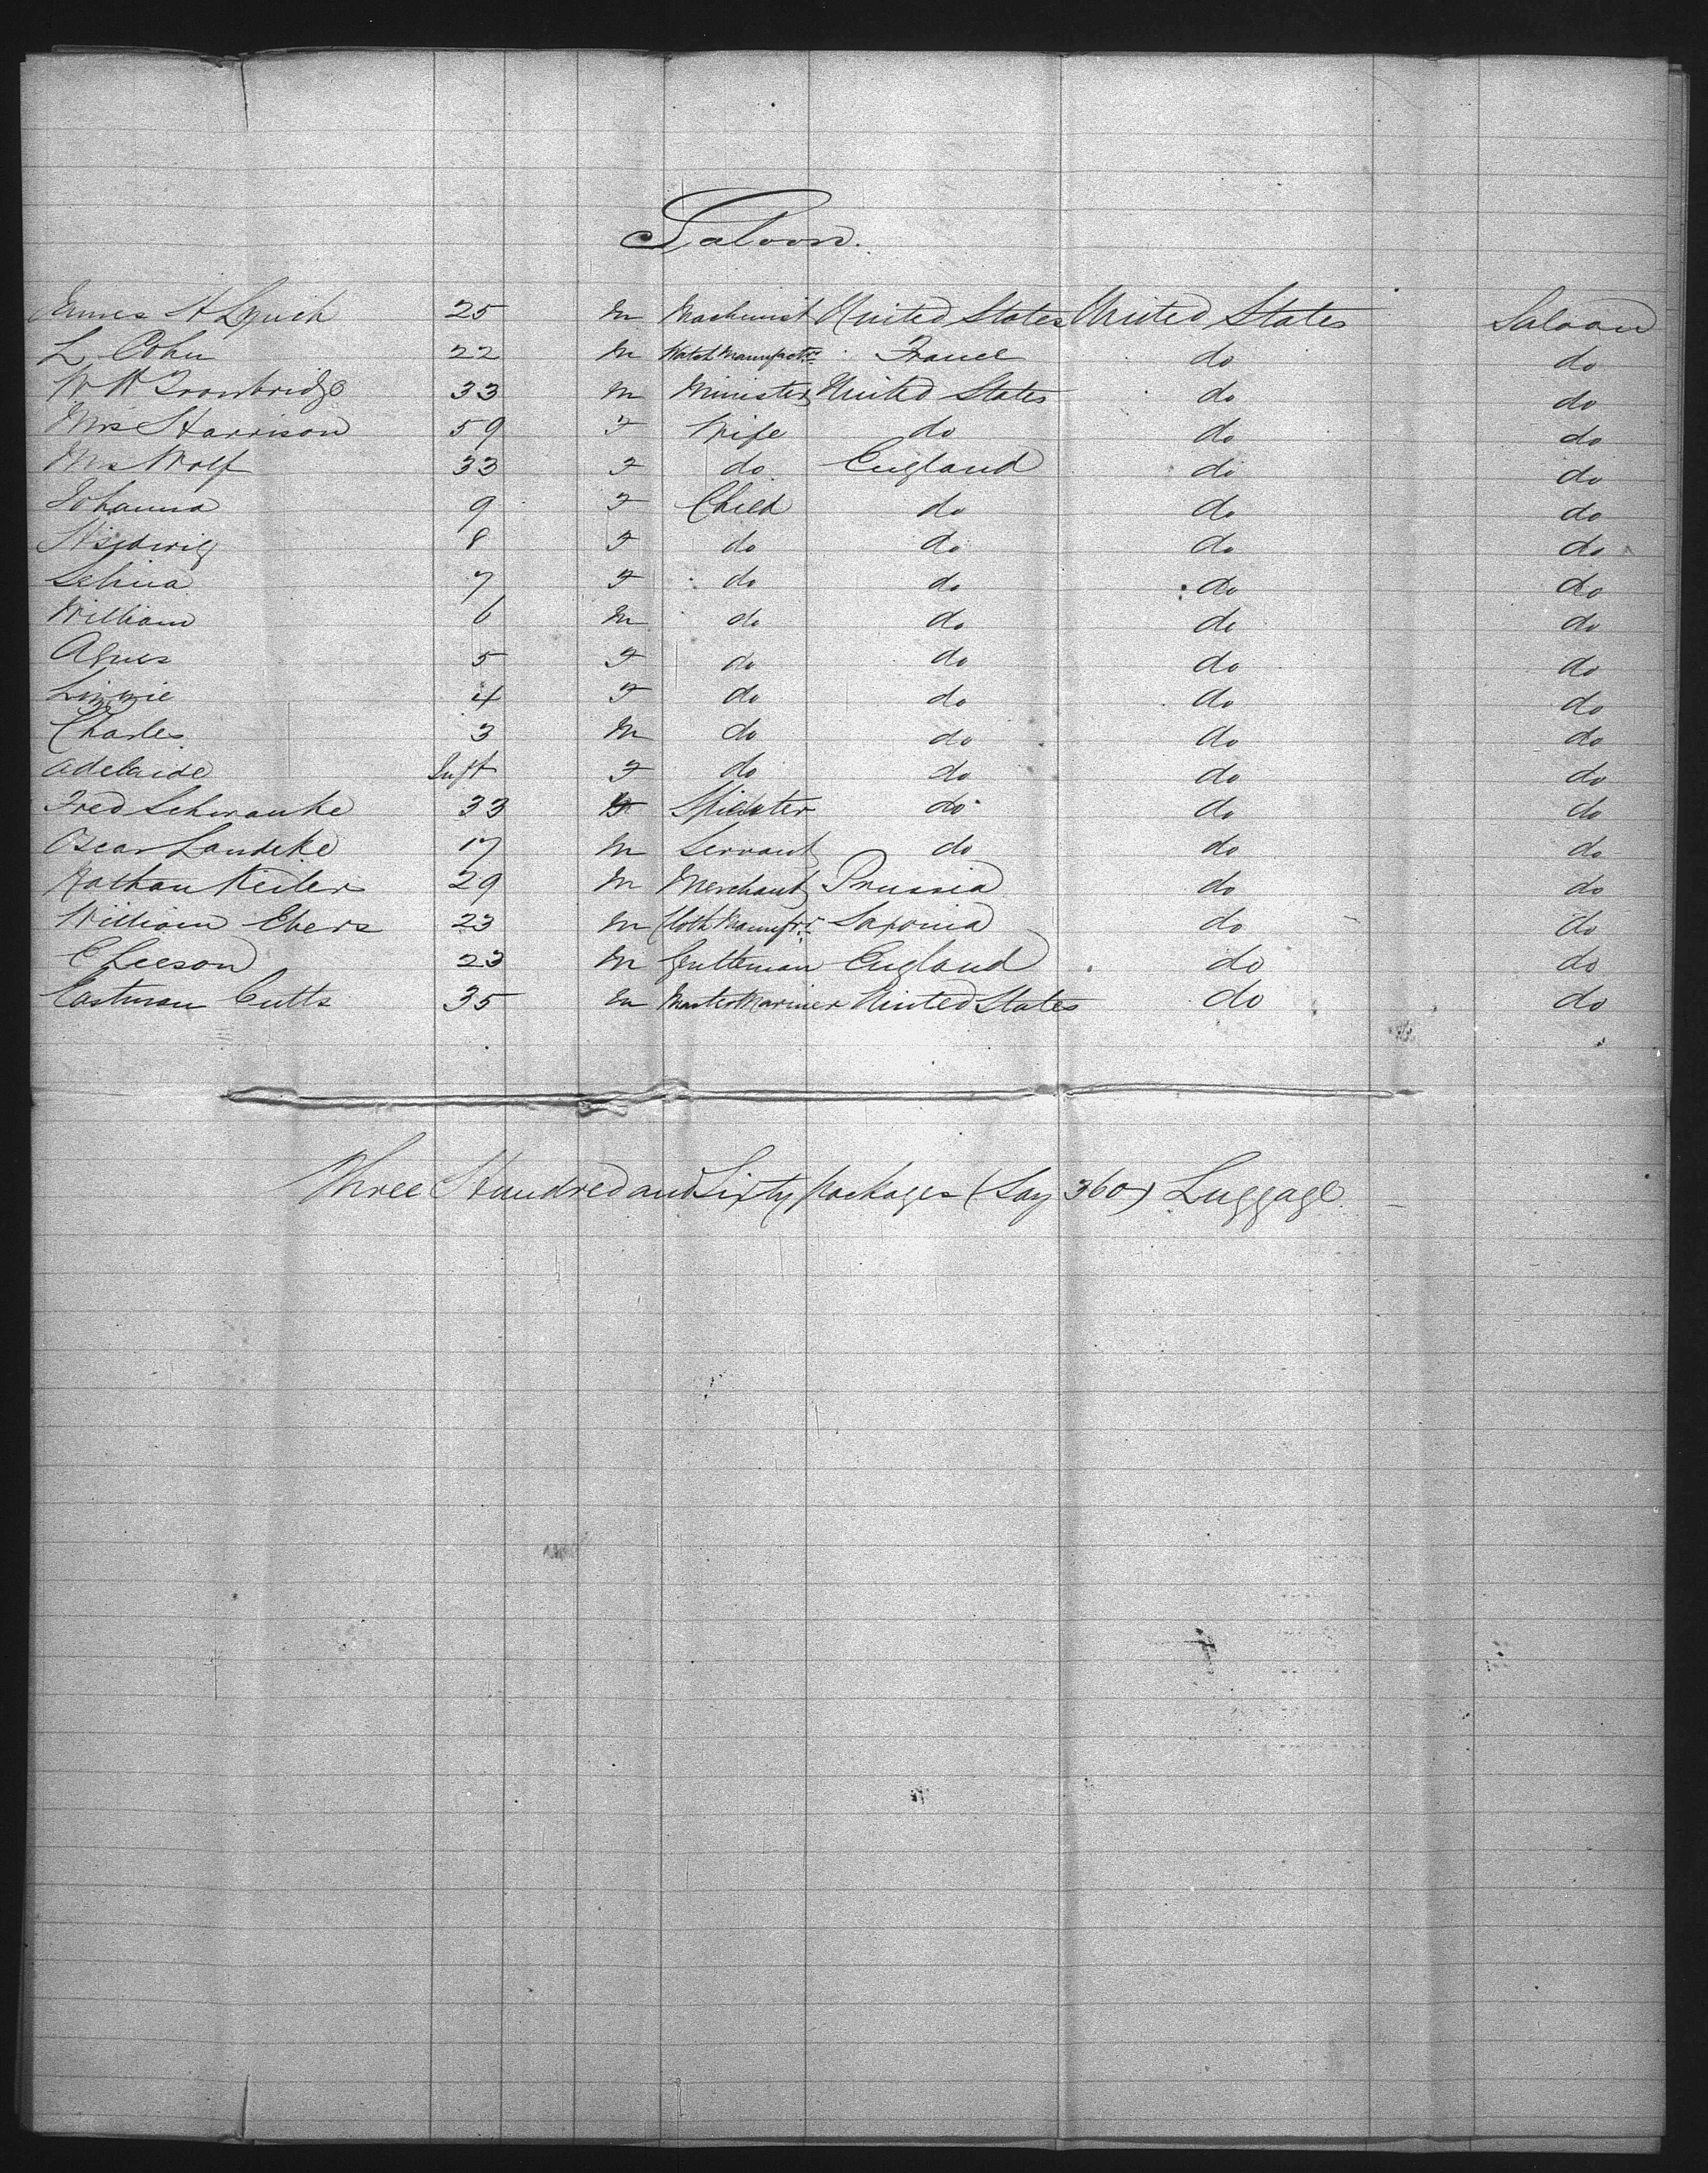 Saloon.
James H Lynch 25 M Machinist United States United States Saloon
L Cohn 22 M Watch Manufactr France do do
W W Trowbridge 33 M Minister United States do do
Mrs Harrison 59 F Wife do do do
Mrs Wolf 33 F do England do do
Johanna 9 F Child do do do
Hedwig 8 F do do do do
Selina 7 F do do do do
William 6 M do do do do
Agnes 5 F do do do do
Linzie 4 F do do do do
Charles 3 M do do do do
Adelaide Inft F do do do do
Fred Schwanke 33 F Spinster do do do
Oscar Landeke 17 M Servant do do do
Nathan Keiler 29 M Merchant Prussia do do
William Ebers 23 M Cloth Manufr Saxonia do do
C Leeson 23 M Gentleman England do do
Eastman Cutts 35 M Master Mariner United States do do
Three Hundred and Sixty packages (Say 360) Luggage